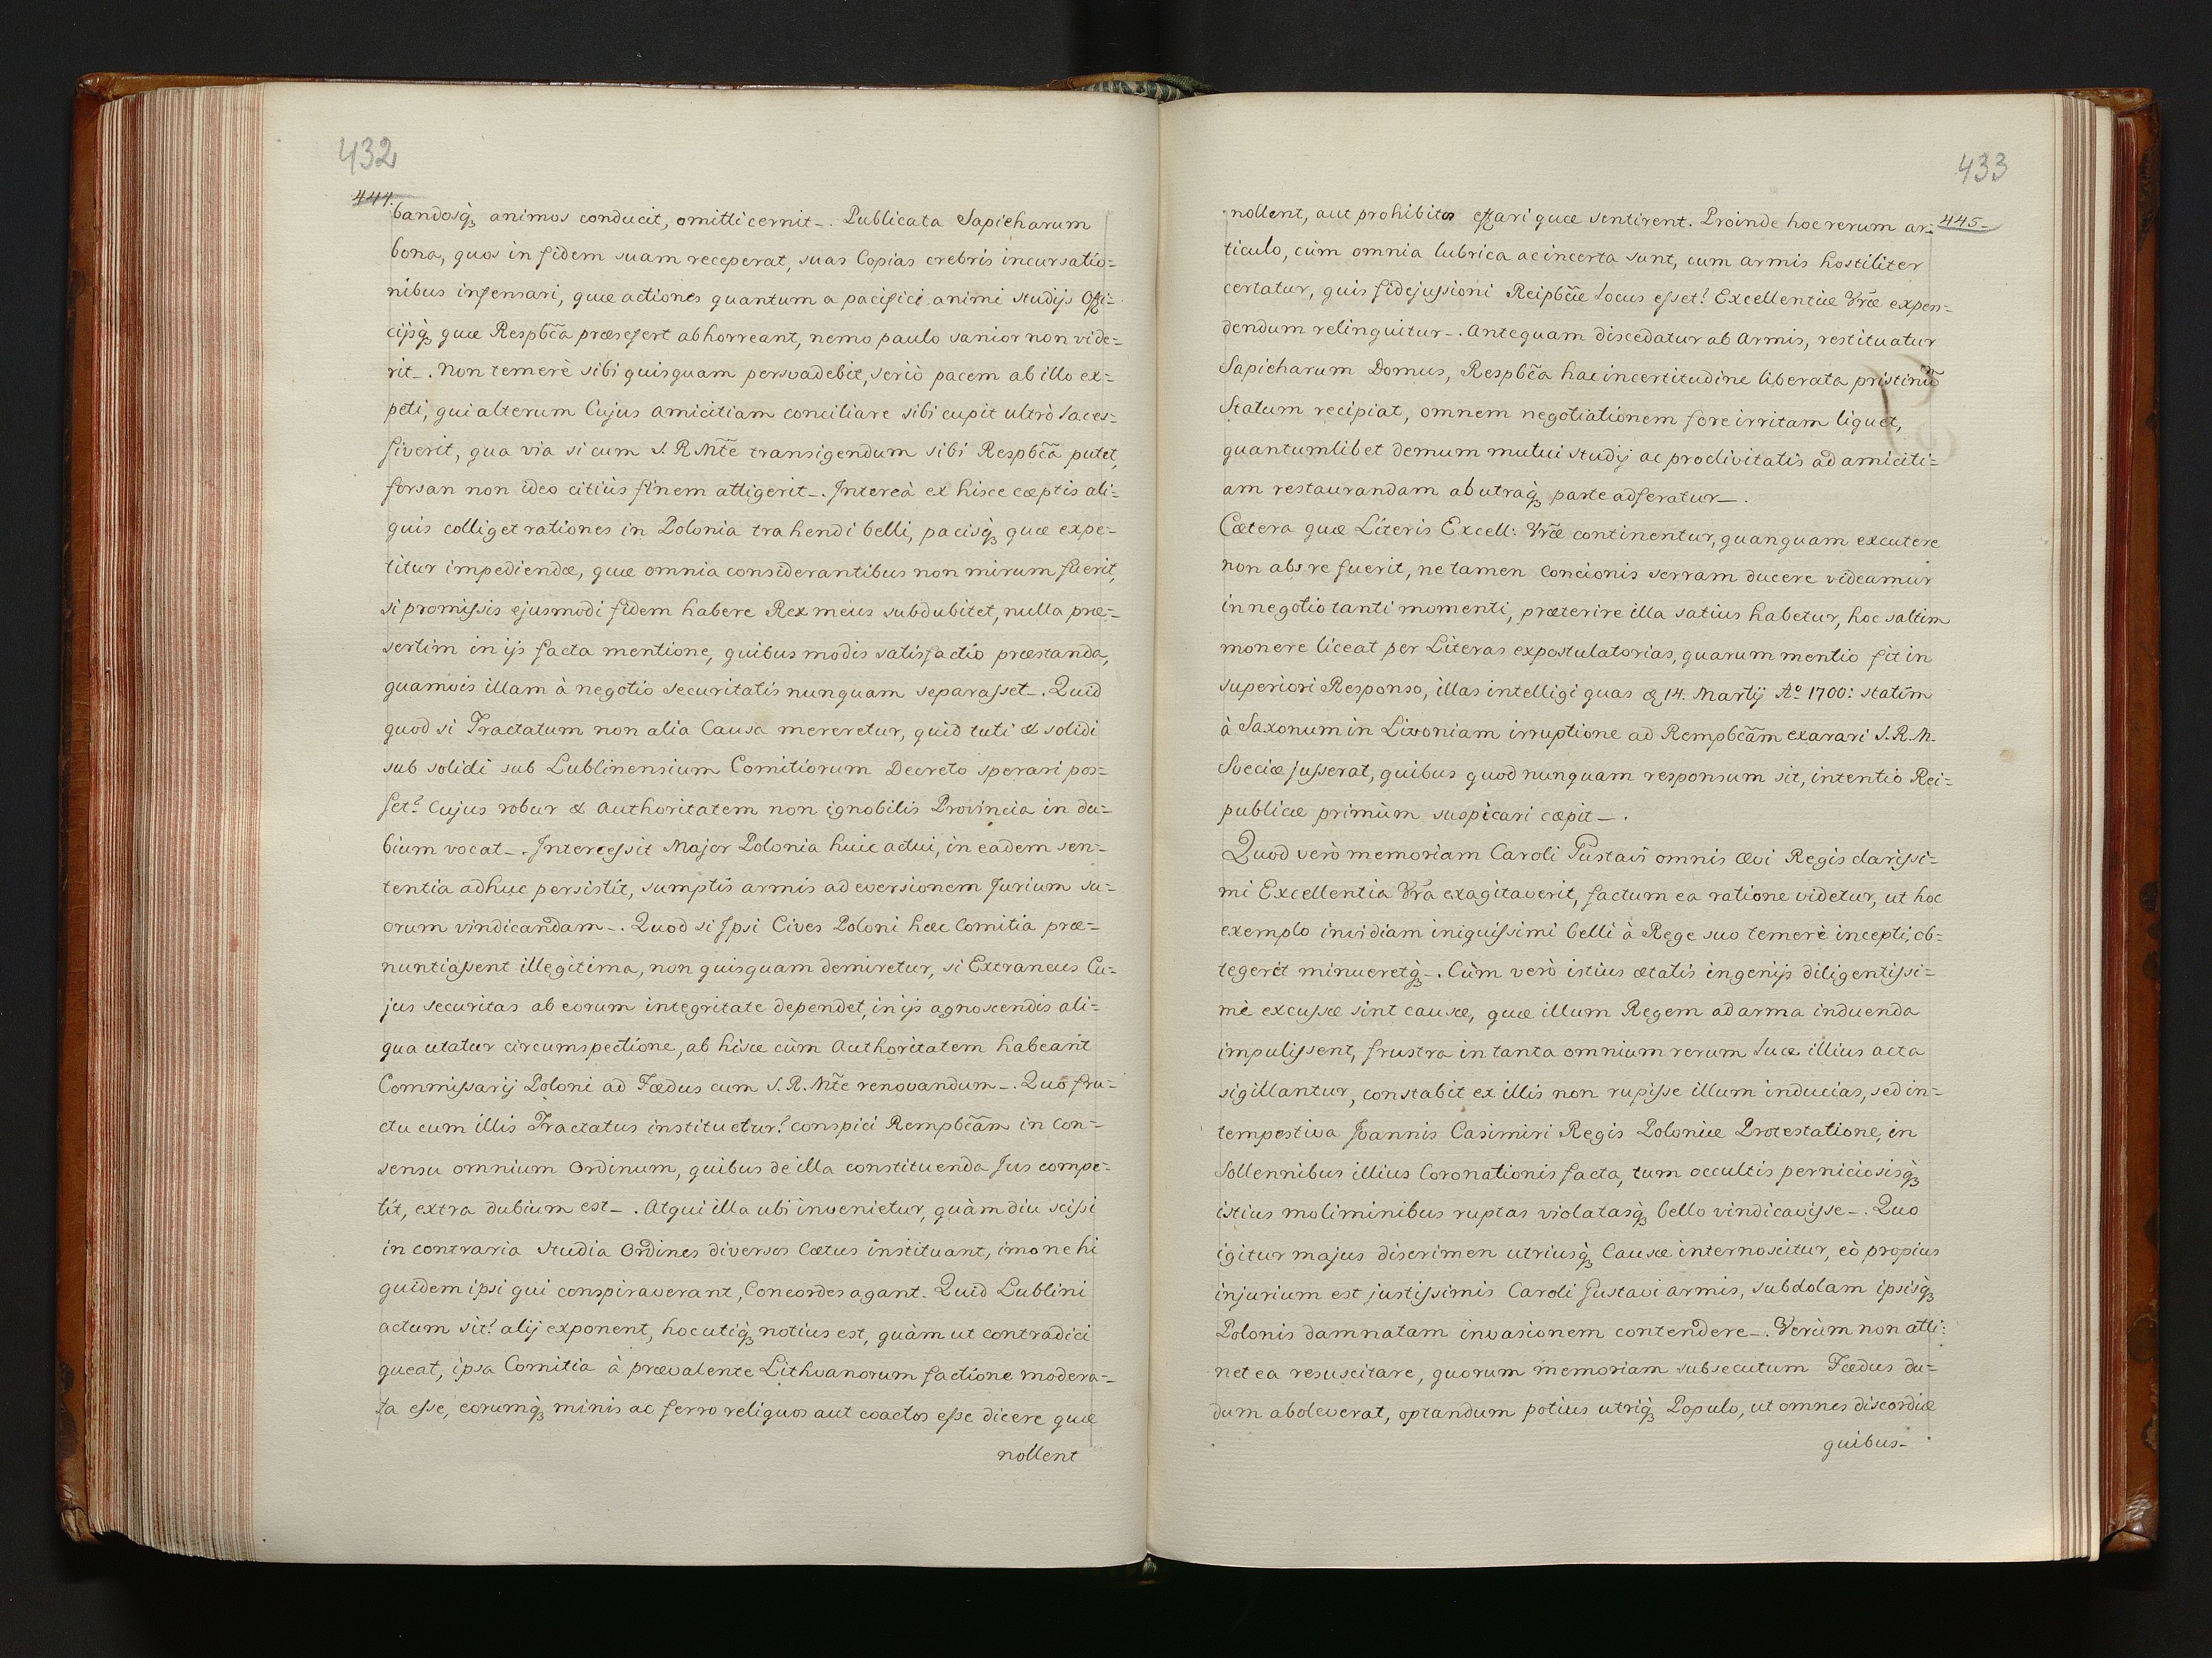 432
444.
bandosq₃ animos conducit, omitti cernit_. Publicata Sapieharum
bona, quos in fidem suam receperat, suas Copias crebris incursatio=
nibus infensari, quæ actiones quantum a pacifici animi studijs Offi=
cijsq₃ quæ Respb̃ca præsefert abhorreant, nemo paulo sanior non vide=
rit_. Non temerè sibi quisquam persvadebit, seriò pacem ab illo ex=
peti, qui alterum Cujus amicitiam conciliare sibi cupit ultrò laces=
siverit, qua via si cum S. R. Mt̃e transigendum sibi Respb̃ca putet,
forsan non ideo citiùs finem attigerit_. Intereà ex hisce cæptis ali=
quis colliget rationes in Polonia trahendi belli, pacisq₃ quæ expe=
titur impediendæ, quæ omnia considerantibus non mirum fuerit,
si promissis ejusmodi fidem habere Rex meus subdubitet, nulla præ=
sertim in ijs facta mentione, quibus modis satisfactio præstanda,
quamvis illam à negotio securitatis nunquam separasset_. Quid
quod si Tractatum non alia Causa mereretur, quid tuti & solidi
sub solidi sub Lublinensium Comitiorum Decreto sperari pos=
set? Cujus robur & Authoritatem non ignobilis Provincia in du=
bium vocat_. Intercessit Major Polonia huic actui, in eadem sen=
tentia adhuc persistit, sumptis armis ad eversionem Jurium su=
orum vindicandam_. Quod si Ipsi Cives Poloni hæc Comitia præ=
nuntiassent illegitima, non quisquam demiretur, si Extraneus Cu=
jus securitas ab eorum integritate dependet, in ijs agnoscendis ali=
qua utatur circumspectione, ab hisce cùm Authoritatem habeant
Commissarij Poloni ad Fædus cum S. R. Mt̃e renovandum_. Quo fru=
ctu cum illis Tractatus instituetur? conspici Rempb̃cam in con=
sensu omnium Ordinum, quibus de illa constituenda Jus compe=
tit, extra dubium est_. Atqui illa ubi invenietur, quàm diu scissi
in contraria studia Ordines diversos Cætus instituant, imo ne hi
quidem ipsi qui conspiraverant, Concordes agant. Quid Lublini
actum sit? alij exponent, hoc utiq₃ notius est, quàm ut contradici
queat, ipsa Comitia à prævalente Lithvanorum factione modera=
ta esse, eorumq₃ minis ac ferro reliquos aut coactos esse dicere quæ
nollent
433
445
nollent, aut prohibitos effari quæ sentirent. Proinde hoc rerum ar=
ticulo, cùm omnia lubrica ac incerta sunt, cum armis hostiliter
certatur, quis fidejussioni Reipb̃cæ locus esset? Excellentiæ Vr̃æ expen=
dendum relinquitur_. Antequam discedatur ab Armis, restituatur
Sapieharum Domus, Respb̃ca hac incertitudine liberata pristinũ
Statum recipiat, omnem negotiationem fore irritam liquet,
quantumlibet demum mutui studij ac proclivitatis ad amiciti=
am restaurandam ab utraq₃ parte adferatur_.
Cætera quæ Literis Excell: Vr̃æ continentur, quanquam excutere
non abs re fuerit, ne tamen Concionis serram ducere videamur
in negotio tanti momenti, præterire illa satius habetur, hoc saltim
monere liceat per Literas expostulatorias, quarum mentio fit in
superiori Responso, illas intelligi quas d. 14. Martij Ao. 1700: statim
à Saxonum in Livoniam irruptione ad Rempb̃cam exarari S. R. M.
Sveciæ jusserat, quibus quod nunquam responsum sit, intentio Rei=
publicæ primùm suspicari cæpit_.
Quod verò memoriam Caroli Gustavi omnis ævi Regis clarissi=
mi Excellentia Vr̃a exagitaverit, factum ea ratione videtur, ut hoc
exemplo invidiam iniquissimi belli à Rege suo temerè incepti, ob=
tegeret minueretq₃_. Cùm verò istius ætatis ingenijs diligentissi=
mè excussæ sint causæ, quæ illum Regem ad arma induenda
impulissent, frustra in tanta omnium rerum luce illius acta
sigillantur, constabit ex illis non rupisse illum inducias, sed in=
tempestiva Joannis Casimiri Regis Poloniæ Protestatione, in
Sollennibus illius Coronationis facta, tum occultis perniciosisq₃
istius moliminibus ruptas violatasq₃ bello vindicavisse_. Quo
igitur majus discrimen utriusq₃ Causæ internoscitur, eò propius
injurium est justissimis Caroli Gustavi armis, subdolam ipsisq₃
Polonis damnatam invasionem contendere_. Verùm non atti=
net ea resuscitare, quorum memoriam subsecutum Fædus du=
dum aboleverat, optandum potius utriq₃ Populo, ut omnes discordiæ
quibus_